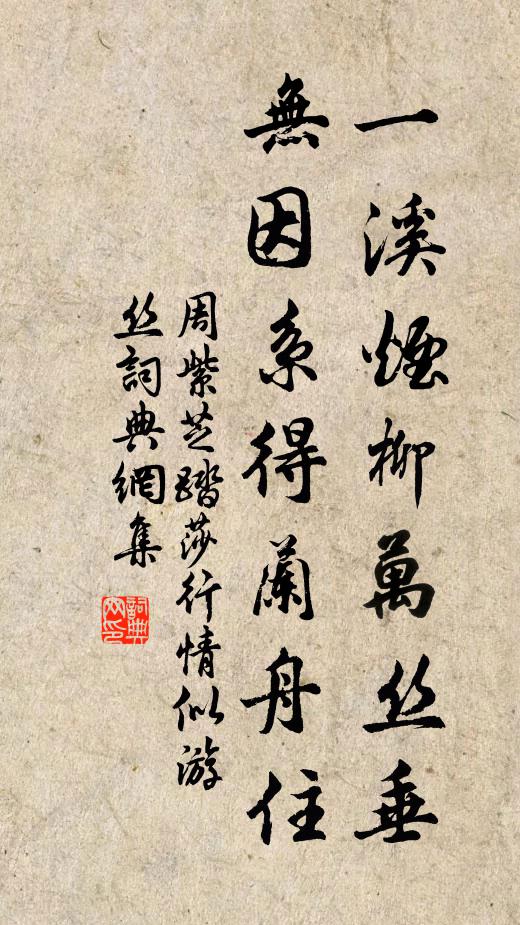 一溪煙柳萬丝垂
無因系得蘭舟住
周紫芝踏莎行情似游
丝詞典網集
詞典网印